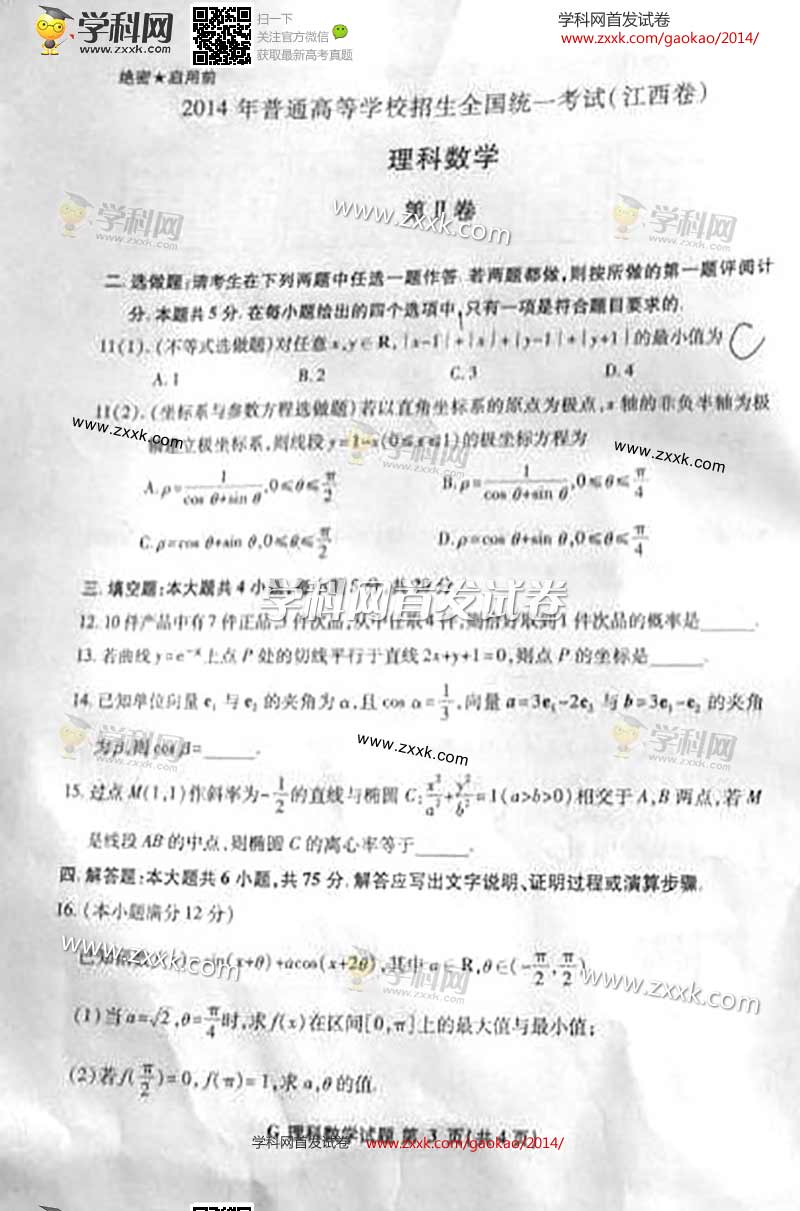 学科网
www.zxxk.com
扫一下
关注官方微信
获取最新高考真题
学科网首发试卷
www.zxxk.com/gaokao/2014/
绝密★启用前
2014 年普通高等学校招生全国统一考试(江西卷)
理科数学
第Ⅱ卷
学科网
zxxk.com
www.zxxk.com
学科网
zxxk.com
二.选做题:请考生在下列两题中任选一题作答.若两题都做,则按所做的第一题评阅计
分.本题共5分.在每小题给出的四个选项中,只有一项是符合题目要求的.
11(1).(不等式选做题)对任意 x,y∈R, |x-1|+|x|+|y-1|+|y+1|的最小值为 C
A.1 B.2 C.3 D.4
11(2).(坐标系与参数方程选做题)若以直角坐标系的原点为极点,x 轴的非负半轴为极
www.zxxk.com
轴建立极坐标系,则线段 y=1-x(0≤x≤1)的极坐标方程为
www.zxxk.com
A.ρ=1/(cos θ+sin θ),0≤θ≤π/2 B.ρ=1/(cos θ+sin θ),0≤θ≤π/4
C.ρ=cos θ+sin θ,0≤θ≤π/2 D.ρ=cos θ+sin θ,0≤θ≤π/4
三.填空题:本大题共 4 小题,每小题 5 分,共 20 分.
学科网首发试卷
12.10件产品中有7件正品,3件次品,从中任取4件,则恰好取到1件次品的概率是______.
13.若曲线 y=e⁻ˣ上点 P 处的切线平行于直线 2x+y+1=0,则点 P 的坐标是______.
14.已知单位向量 e₁ 与 e₂ 的夹角为 α,且 cos α=1/3,向量 a=3e₁-2e₂ 与 b=3e₁-e₂ 的夹角
为 β,则 cos β=______.
学科网
zxxk.com
www.zxxk.com
学科网
zxxk.com
15.过点 M(1,1)作斜率为-1/2的直线与椭圆 C:x²/a²+y²/b²=1(a>b>0)相交于 A,B 两点,若 M
是线段 AB 的中点,则椭圆 C 的离心率等于______.
四.解答题:本大题共 6 小题,共 75 分.解答应写出文字说明、证明过程或演算步骤.
16.(本小题满分 12 分)
www.zxxk.com
已知函数 sin(x+θ)+acos(x+2θ),其中 a∈R,θ∈(-π/2,π/2).
学科网
zxxk.com
www.zxxk.com
(1)当 a=√2,θ=π/4时,求 f(x)在区间[0,π]上的最大值与最小值;
(2)若 f(π/2)=0,f(π)=1,求 a,θ 的值.
G 理科数学试题 第 3 页(共 4 页)
学科网首发试卷 www.zxxk.com/gaokao/2014/